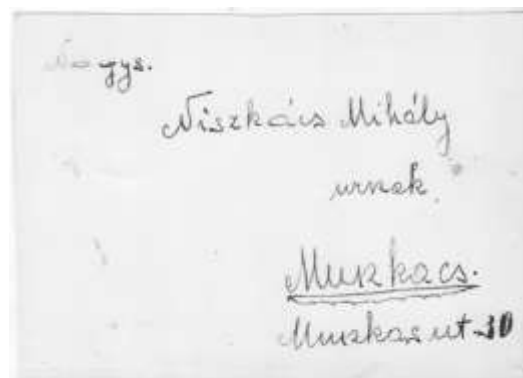 Nagys.
Niszkács Mihály
urnak
Munkacs.
Munkas ut 30